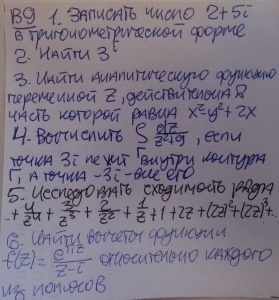 В9 1. Записать число 2+5i
в тригонометрической форме
2. Найти 3^i
3. Найти аналитическую функцию
переменной z, действительная
часть которой равна x²-y²+2x
4. Вычислить ∫ dz/(z²+9), если
точка 3i лежит внутри контура
Г, а точка -3i - вне его
5. Исследовать сходимость ряда
..+ 4/z⁴ + 3/z³ + 2/z² + 1/z + 1 + 2z + (2z)² + (2z)³+..
6. Найти вычеты функции
f(z) = /(z-i) относительно каждого
из полюсов